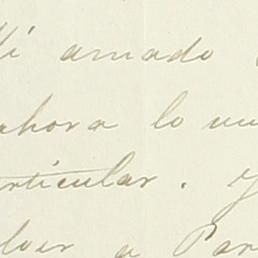 Mi amado
ahora lo
particular. y
volver a Par